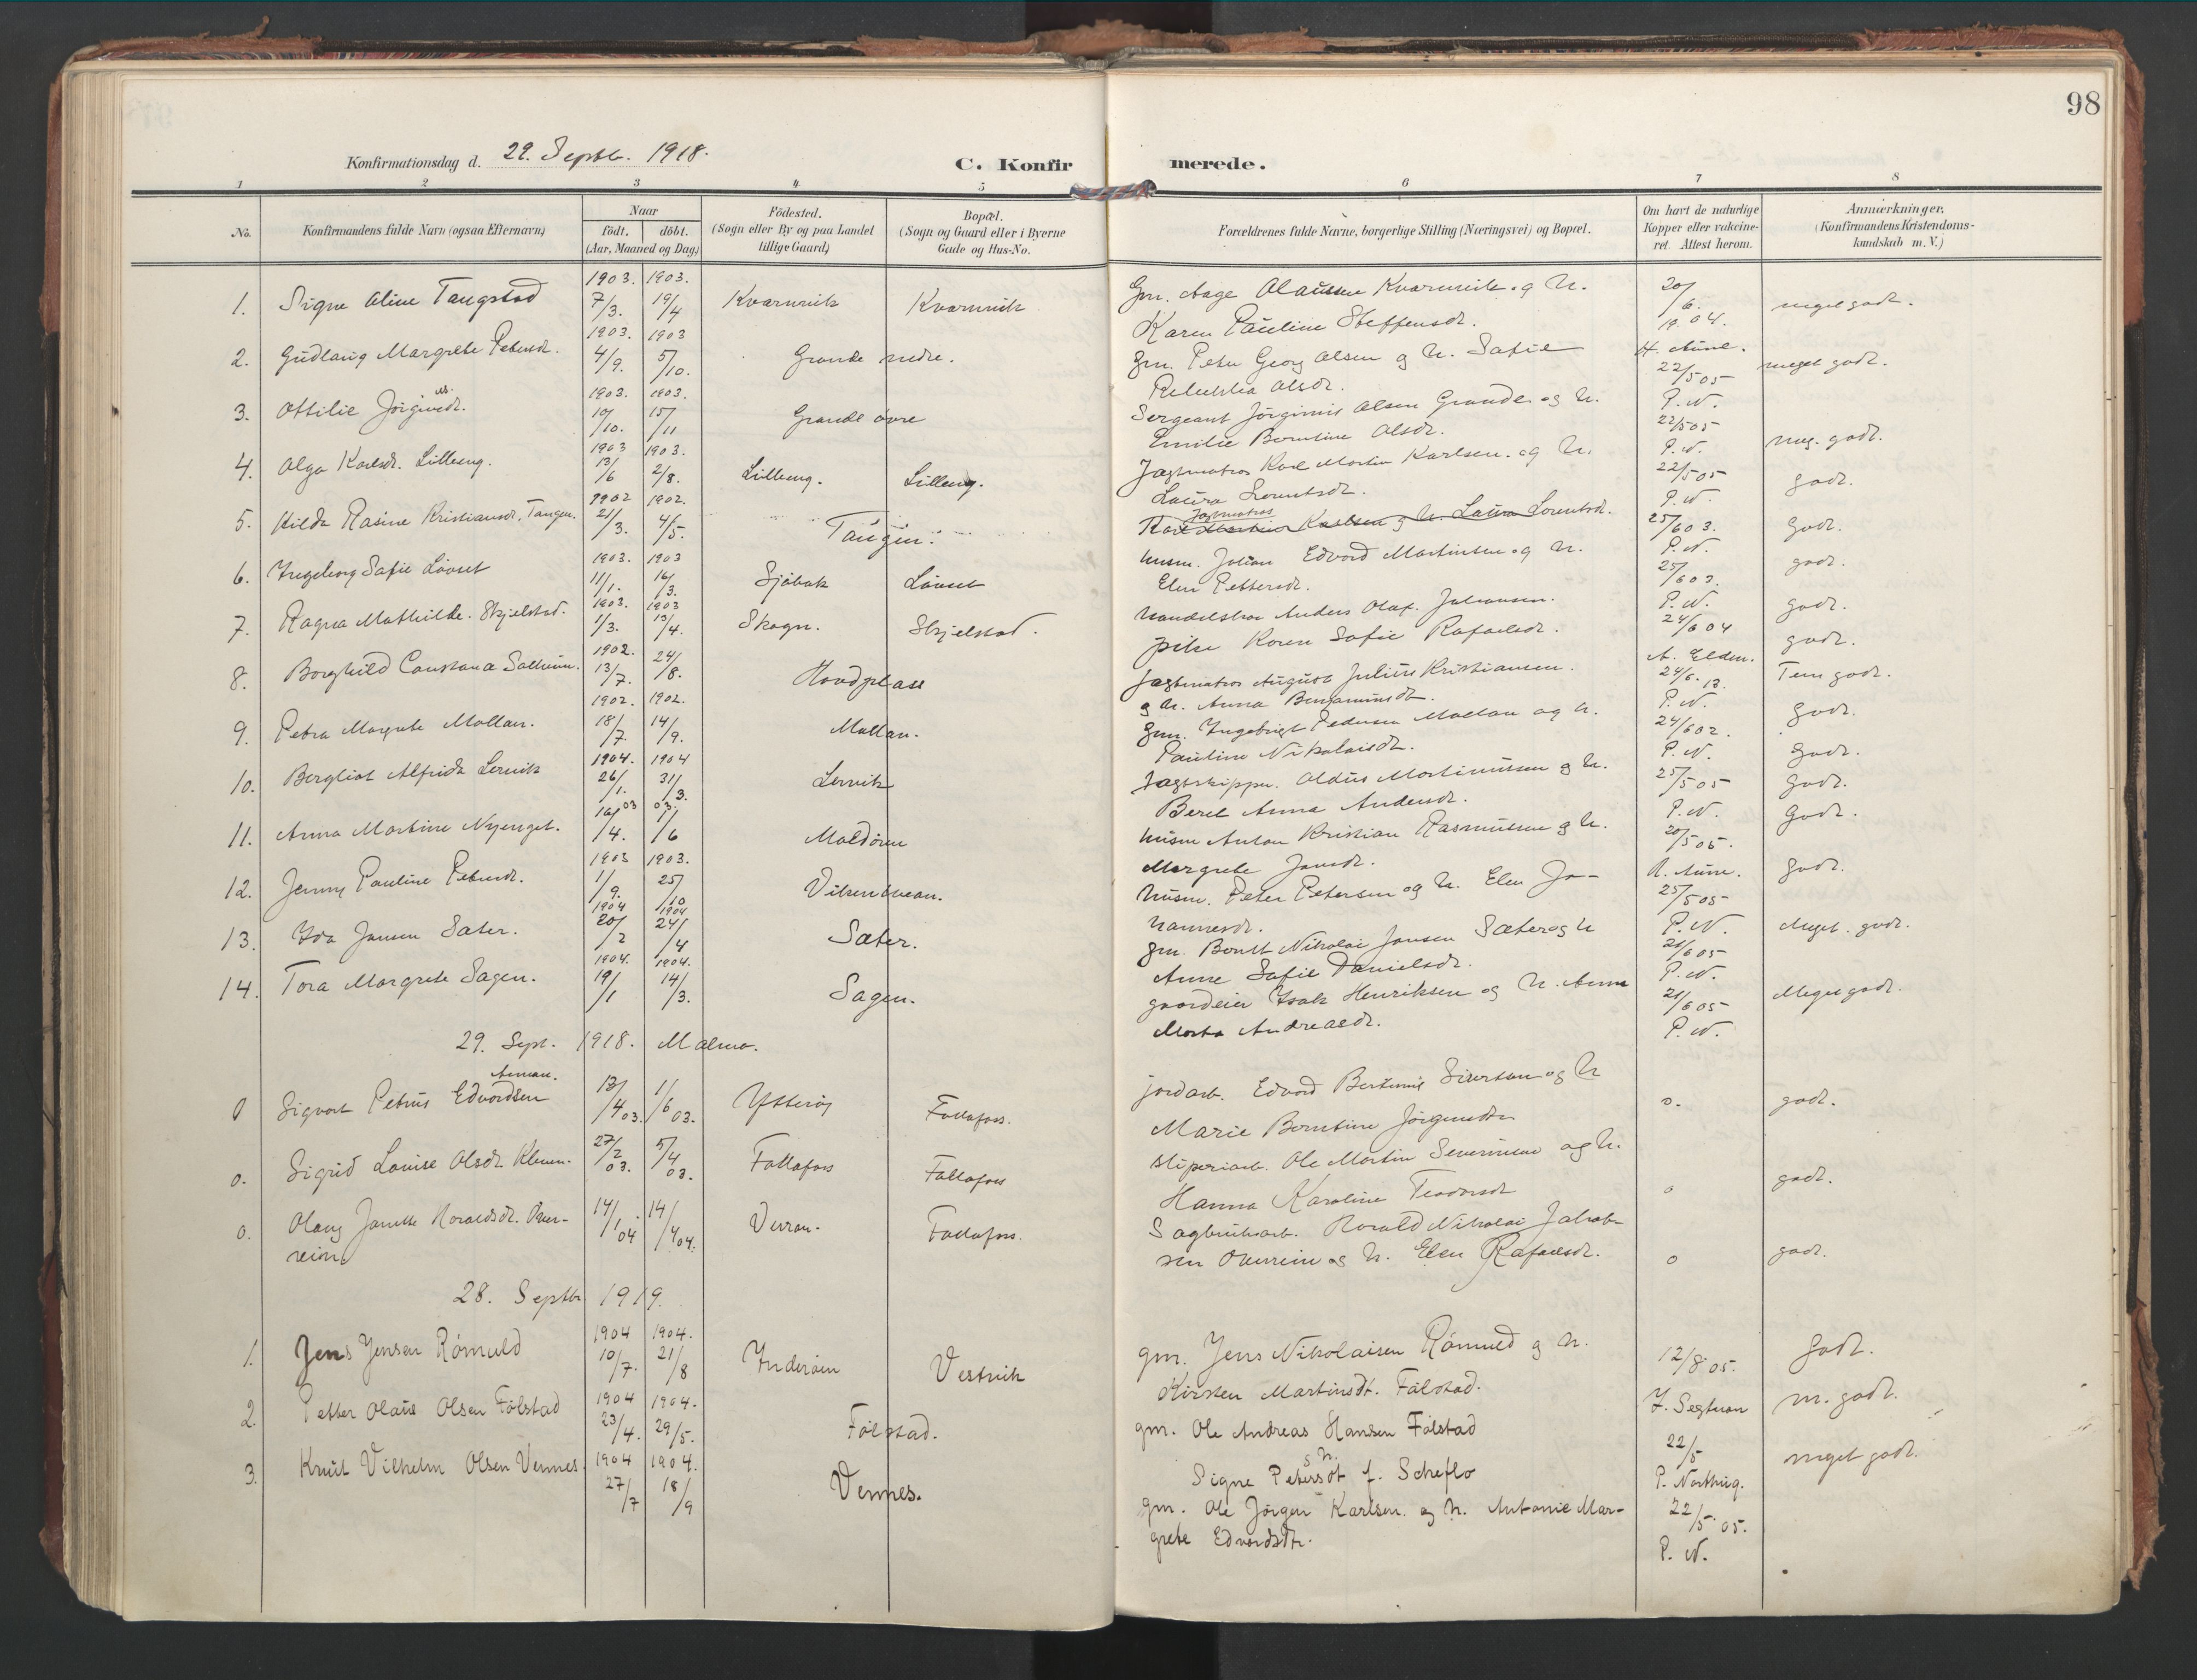 98
Konfirmationsdag d. 22. Septb. 1918.
C. Konfirmerede.
1 2 3 4 5 6 7 8
No.
Konfirmandens fulde Navn (ogsaa Efternavn)
Naar
födt. döbt.
(Aar, Maaned og Dag)
Födested.
(Sogn eller By og paa Landet
tillige Gaard)
Bopæl.
(Sogn og Gaard eller i Byerne
Gade og Hus-No.
Forældrenes fulde Navne, borgerlige Stilling (Næringsvei) og Bopæl.
Om havt de naturlige
Kopper eller vakcine-
ret. Attest herom.
Anmærkninger.
(Konfirmandens Kristendoms-
kundskab m. V.)
1. Signe Oline Tangstad 1903. 7/3. 1903. 19/4 Kvarnvik Kvarnvik
Gm. Aage Olaussen Kvarnvik og H. 20/6. 19.04. meget godt.
Karen Pauline Steffensdt.
2. Gudlaug Margrete Petersdt. 1903. 4/9. 1903 5/10. Grande nedre.
Gm. Peter Georg Olsen og H. Safie H. Aune. 22/5 05 meget godt.
Olsdt. P. N.
3. Ottilie Jörginusdt. 1903. 10/10. 1903. 15/11 Grande övre
Sergeant Jörginus Olsen Grande og H. 22/5 05 meg. godt.
Emilie Berntine Olsdt. P. N.
4. Olga Karlsdt. Lilleeng. 1903 13/6 1903. 2/8. Lilleeng. Lilleeng.
Jagtmatros Karl Martin Karlsen og H. 22/5 05 godt.
Laura Lorentsdt. P. N.
5. Hilda Rasine Kristiansdt. Tangen. 1902 21/3. 1902. 4/5. Tangen.
Jagtmatros
Karl Martin Karlsen og H. Laura Lorentsdt. 25/6 03. Godt.
P. N.
6. Ingeborg Safie Lövset 1903. 11/1. 1903 16/3. Sjöbak Lövset
Husm. Johan Edvard Martinsen og H. 25/6 03. godt.
Elen Pettersdt. P. N.
7. Ragna Mathilde Skjelstad. 1903. 1/3. 1903 13/4. Skogn. Skjelstad.
Handelsbor Anders Olaf Johansen. 24/6 04 godt.
pike Karen Safie Rafaelsdt. A. Elden. godt.
8. Borghild Constance Solheim. 1902. 13/7. 24/8. Hovdplass
Jagtmatros August Julius Kristiansen. 24/6. 13. Temgodt.
og H. Anna Benjaminsdt. P. N.
9. Petra Margrete Mollan. 1902. 18/7 1902. 14/9. Mollan.
Gm. Ingebrigt Pedersen Mollan og H. 24/6 02. Godt.
Pauline Nikolaisdt. P. N. Godt.
10. Bergliot Alfrida Lervik 1904. 26/1. 1904 31/3. Lervik
Jagtskipper Oldus Martinussen og H. 25/5 05 Godt.
Beret Anna Andersdt. P. N. Godt.
11. Anna Martine Nyenget. 16/4. 03 1/6 03. Moldören
Husm Anton Kristian Rasmussen og H. 20/5 05.
Margrete Jonsdt. H. Aune. Godt.
12. Jenny Pauline Petersdt. 1903 1/9. 1903. 25/10
Husm. Peter Petersen og H. Elen Jo- 25/5 05
hannesdt. P. N.
13. Ida Jansen Sæter. 1904 20/2 1904 24/4 Sæter.
Gm. Berntt Nikolai Jansen Sæter og H 21/6 05 Meget godt.
Anne Safie Danielsdt. P. N.
14. Tora Margrete Sagen. 1904. 19/1 1904. 14/3. Sagen.
gaardeier Isak Henriksen og H. Anna 21/6 05 Meget godt.
Marta Andreasdt. P. N.
29. Sept. 1918. Malmo.
0 Sigvart Petrus Edvardsen 13/4 03. 1/6 03. Ytteröy Follafoss.
jordarb. Edvard Bertinus Sivertsen og H o. godt.
Marie Berntine Jörgensdtr
0. Sigrid Lovise Olsdt. 27/2 03. 5/4 03. Follafoss Follafoss
sliperiarb. Ole Martin Severinsen og H. o godt.
Hanna Karoline Teodorsdt
0. Olaug Janette Haraldsdt. Over-
reim. 14/1 04 14/4 04. Verran. Follafoss.
Sagbruksarb. Harald Nikolai Jakob-
sen Overrein og H. Elen Rafaelsdt. o godt.
28. Septbr 1919.
1. Jens Jensen Römuld 1904 10/7. 1904. 21/8 Inderöen Vestvik
gm. Jens Nikolaisen Römuld og H. 12/8 05. Godt.
Kirsten Martinsdt. Fölstad. J. Segtnan
2. Petter Olaus Olsen Fölstad 1904 23/4. 1904. 29/5. Fölstad.
gm. Ole Andreas Hansen Fölstad 22/5 m. godt.
og H.
Signe Petersdt f. Scheflo P. Northug.
3. Knut Vilhelm Olsen Vennes. 1904 27/7 1904. 18/9 Vennes.
gm. Ole Jörgen Karlsen og H. Antonie Mar- 22/5. 05. meget godt.
grete Edvardsdtr. P. N.